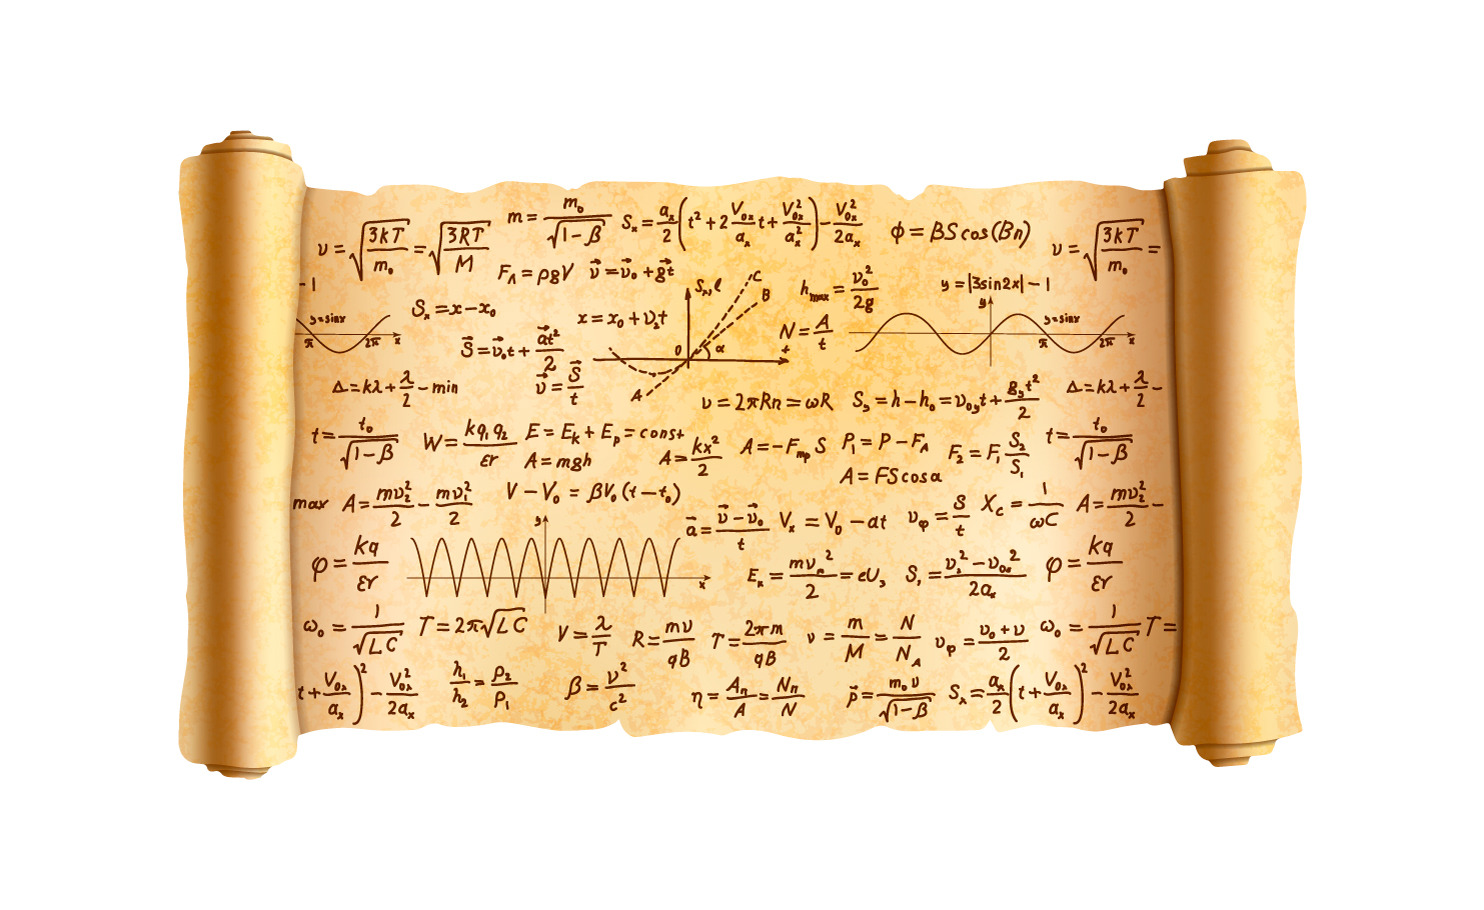 υ = √(3kT/m₀) = √(3RT/M)
m = m₀/√(1-β)
Sₓ = aₓ/2 (t² + 2 V₀ₓ/aₓ t + V₀ₓ²/aₓ²) - V₀ₓ²/2aₓ
ϕ = βS cos(Bn)
υ = √(3kT/m₀) =
F_A = ρgV
υ⃗ = υ⃗₀ + g⃗t
Sₓ, ℓ
C
B
O
α
t
A
h_max = υ₀²/2g
y = |3sin2x| - 1
- 1
y=sinx
π
2π
x
Sₓ = x - x₀
x = x₀ + υₓt
N = A/t
y
y=sinx
π
2π
x
S⃗ = υ⃗₀t + a⃗t²/2
υ⃗ = S⃗/t
Δ = kλ + λ/2 - min
υ = 2πRn = ωR
S_y = h - h₀ = υ₀yt + g_yt²/2
Δ = kλ + λ/2 -
t = t₀/√(1-β)
W = kq₁q₂/εr
E = E_k + E_p = const
A = mgh
A = kx²/2
A = -F_mp S
P₁ = P - F_A
F₂ = F₁ S₂/S₁
t = t₀/√(1-β)
A = FS cosα
max
A = mυ₂²/2 - mυ₁²/2
V - V₀ = βV₀(t - t₀)
a⃗ = (υ⃗ - υ⃗₀)/t
Vₓ = V₀ - at
υ_φ = S/t
X_C = 1/ωC
A = mυ₂²/2 -
φ = kq/εr
y
x
E_k = mυ²/2 = eU₃
S₁ = (υₓ² - υ₀ₓ²)/2aₓ
φ = kq/εr
ω₀ = 1/√(LC)
T = 2π√(LC)
V = λ/T
R = mυ/qB
T = 2πm/qB
υ = m/M = N/N_A
υ_φ = (υ₀ + υ)/2
ω₀ = 1/√(LC)
T =
t + V₀ₓ/aₓ)² - V₀ₓ²/2aₓ
h₁/h₂ = ρ₂/ρ₁
β = υ²/c²
η = Aₙ/A = Nₙ/N
p⃗ = m₀υ/√(1-β)
Sₓ = aₓ/2 (t + V₀ₓ/aₓ)² - V₀ₓ²/2aₓ